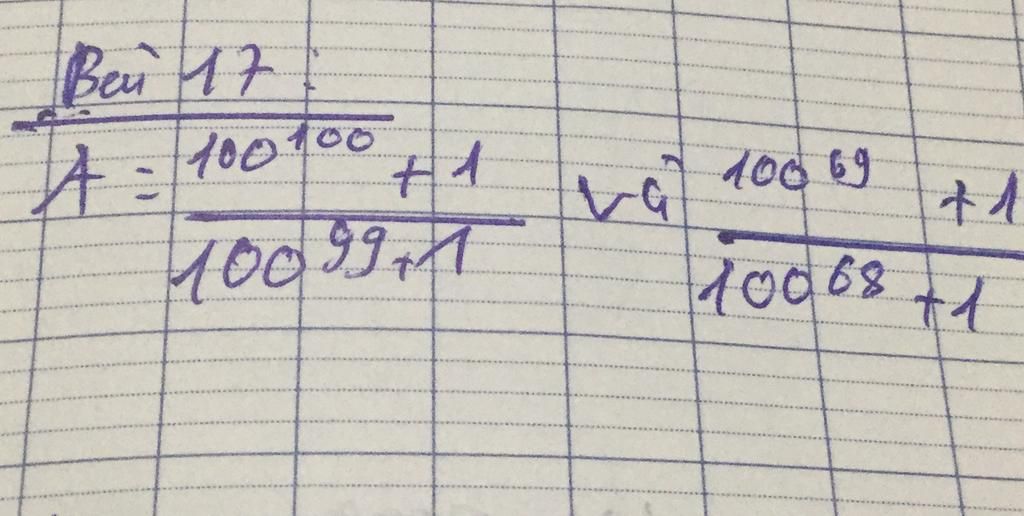 Bài 17 :
A = \frac{100^{100} + 1}{100^{99} + 1} và \frac{100^{69} + 1}{100^{68} + 1}